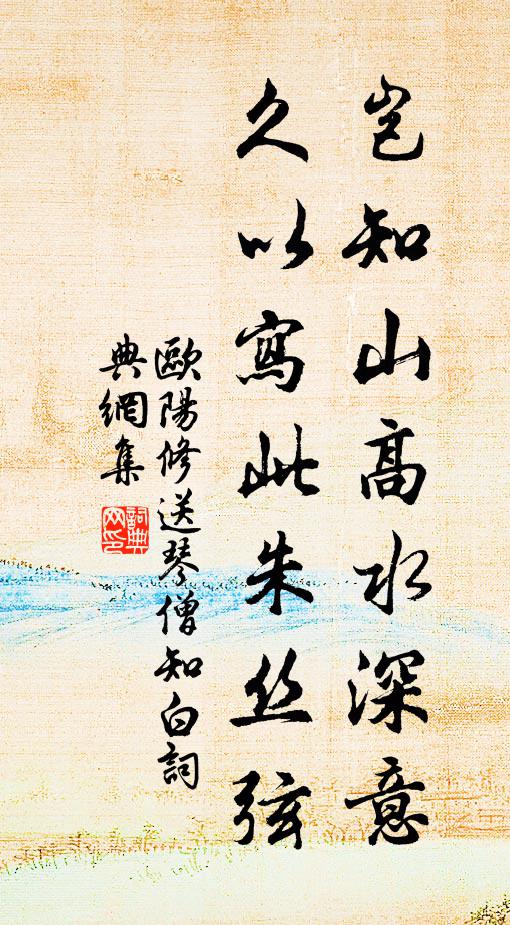 岂知山高水深意
久以寫此朱丝弦
歐陽修送琴僧知白詞
典網集
詞典
网印